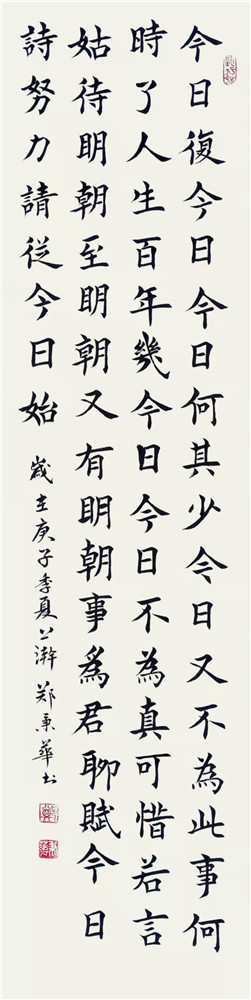 今日復今日今日何其少今日又不為此事何
時了人生百年幾今日今日不為真可惜若言
姑待明朝至明朝又有明朝事爲君聊賦今日
詩努力請從今日始
歲在庚子季夏上澣 郑秉華书